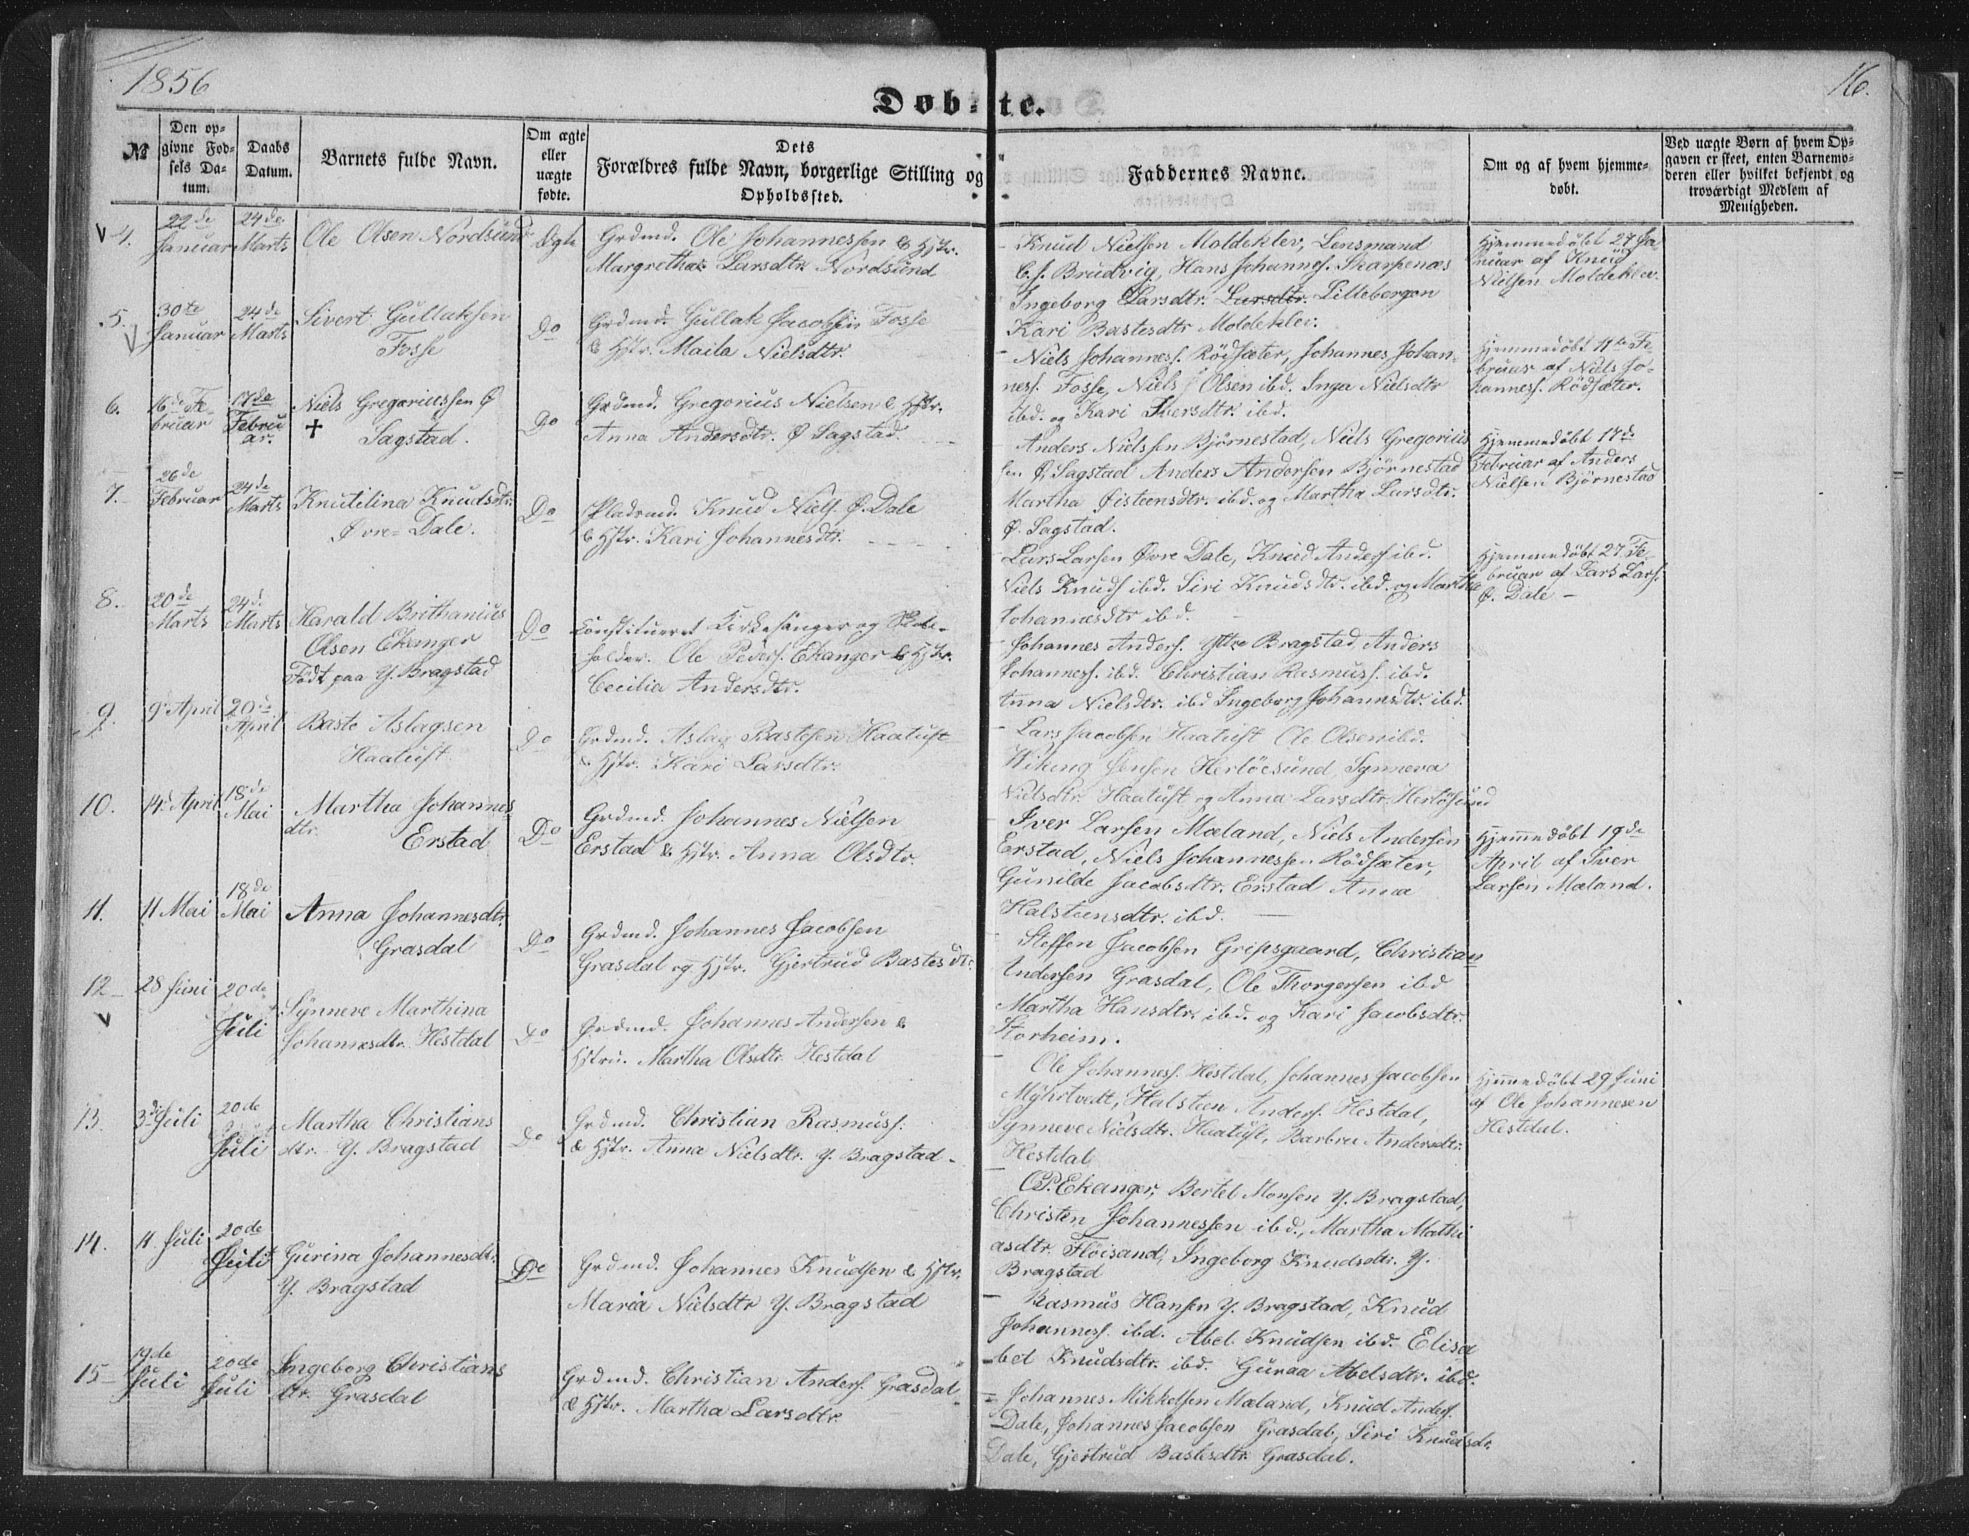 1856
16.
Døbte.
№
Den op=
givne Fød=
sels Da=
tum.
Daabs
Datum.
Barnets fulde Navn.
Om ægte
eller
uægte
fødte.
Dets
Forældres fulde Navn, borgerlige Stilling og
Opholdssted.
Faddernes Navne.
Om og af hvem hjemme=
døbt.
Ved uægte Børn af hvem Op=
gaven er skeet, enten Barnemo=
deren eller hvilket bekjendt og
troværdigt Medlem af
Menigheden.
4.
22de
Januar
24de
Marts
Ole Olsen Nordsund
Ægte
Grdmd. Ole Johannessen & Hstr.
Margretha Larsdtr. Nordsund
Knud Nielsen Moldeklev, Lensmand
C. f. Brudvig, Hans Johannes. Skarpenæs
Ingeborg Larsdtr. Larsdtr. Lillebergen
Kari Bastesdtr Moldeklev.
Hjemmedøbt 27 Ja-
nuar af Knud
Nielsen Moldeklev.
5.
30te
Januar
24de
Marts
Sivert Gullaksen
Fosse
Do
Grdmd. Gullak Jacobsen Fosse
& Hstr. Maila Nielsdtr.
Niels Johanness. Rödsæter, Johannes Johan-
ness. Fosse, Niels Olsen ibd. Inga Nielsdtr
ibd. og Kari Iversdtr. ibd.
Hjemmedøbt 11te Fe-
bruar af Niels Jo-
hanness. Rödsæter.
6.
16de Fe-
bruar
17de
Febru
ar.
Niels Gregoriussen Ø
† Sagstad.
Do
Grdmd. Gregorius Nielsen & Hstr.
Anna Andersdtr. Ø Sagstad.
Anders Nielssen Björnestad, Niels Gregorius
sen Ø. Sagstad Anders Andersen Björnestad
Martha Øisteensdtr. ibd. og Martha Larsdtr.
Ø. Sagstad.
Hjemmedøbt 17de
Februar af Anders
Nielsen Björnestad
7.
26de
Februar
24de
Marts
Knutilina Knudsdtr.
Øvre=Dale.
Do
Pladsmd. Knud Niels. Ø. Dale
& Hstr. Kari Johannesdtr.
Lars Larsen Øvre Dale, Knud Anders ibd.
Niels Knuds ibd. Siri Knudsdtr. ibd. og Martha
Johannesdtr ibd.
Hjemmedøbt 27. Fe-
bruar af Lars Lars.
Ø. Dale
8.
20de
Marts
24de
Marts
Harald Brithanius
Olsen Ekanger
Födt paa Y. Bragstad
Do
Constitueret Kirkesanger og Skole-
holder. Ole Peders. Ekanger & Hstr.
Cecilia Andersdtr.
Johannes Anders. Ytre Bragstad, Anders
Johanness. ibd. Christian Rasmuss. ibd.
Anna Nielsdtr. ibd Ingeborg Johannsdtr. ibd.
9.
9de April
20de
April
Baste Aslagsen
Haatuft
Do
Grdmd. Aslag Bastesen Haatuft
& Hstr. Kari Larsdtr.
Lars Jacobsen Haatuft Ole Olsen ibd.
Wiking Jensen Herlöesund, Synneva
Nielsdtr. Haatuft og Anna Larsdtr. Herlösund
10.
14de April
18de
Mai
Martha Johannes
dtr. Erstad
Do
Grdmd. Johannes Nielsen
Erstad & Hstr. Anna Olsdtr.
Iver Larsen Mæland, Niels Andersen
Erstad, Niels Johannessen Rödsæter,
Gunilde Jacobsdtr. Erstad Anna
Halsteensdtr. ibd.
Hjemmedøbt 19de
April af Iver
Larsen Mæland.
11.
11 Mai
18de
Mai
Anna Johannesdtr.
Grasdal
Do
Grdmd. Johannes Jacobsen
Grasdal og Hstr. Gjertrud Bastesdtr.
Steffen Jacobsen Gripsgaard, Christian
Andersen Grasdal, Ole Thorgersen ibd
Martha Hansdtr. ibd. og Kari Jacobsdtr.
Storheim.
12
28 Juni
20de
Juli
Synneve Marthina
Johannesdtr. Hestdal
Do
Grdmd. Johannes Andersen &
Hstru. Martha Olsdtr Hestdal
Ole Johanness. Hestdal, Johannes Jacobsen
Myhrtvedt, Halsteen Anders. Hestdal,
Synneve Nielsdtr. Haatuft, Barbra Andersdtr.
Hestdal
Hjemmedøbt 29 Juni
af Ole Johannesen
Hestdal.
13.
3de Juli
20de
Juli
Martha Christians
dtr. Y. Bragstad
Do
Grdmd. Christian Rasmuss.
& Hstr. Anna Nielsdtr. Y. Bragstad
O.P. Ekanger, Bertel Monsen Y. Bragstad,
Christen Johannessen ibd., Martha Mathi
asdtr. Flöisand, Ingeborg Knudsdtr. Y.
Bragstad
14.
11 Juli
20de
Juli
Gurina Johannesdtr.
Y. Bragstad
Do
Grdmd. Johannes Knudsen & Hstr.
Maria Nielsdtr Y. Bragstad
Rasmus Hansen Y. Bragstad, Knud
Johanness. ibd. Abel Knudsen ibd. Elisa
bet Knudsdtr. ibd. Guraa Abelsdtr. ibd.
15
19de
Juli
20de
Juli
Ingeborg Christians
dtr. Grasdal
Grdmd. Christian Anders. Grasdal
& Hstr. Martha Larsdtr.
Johannes Mikkelsen Mæland, Knud Anders.
Dale, Johannes Jacobsen Grasdal, Siri Knudsdr.
Dale, Gjertrud Bastesdtr Grasdal.